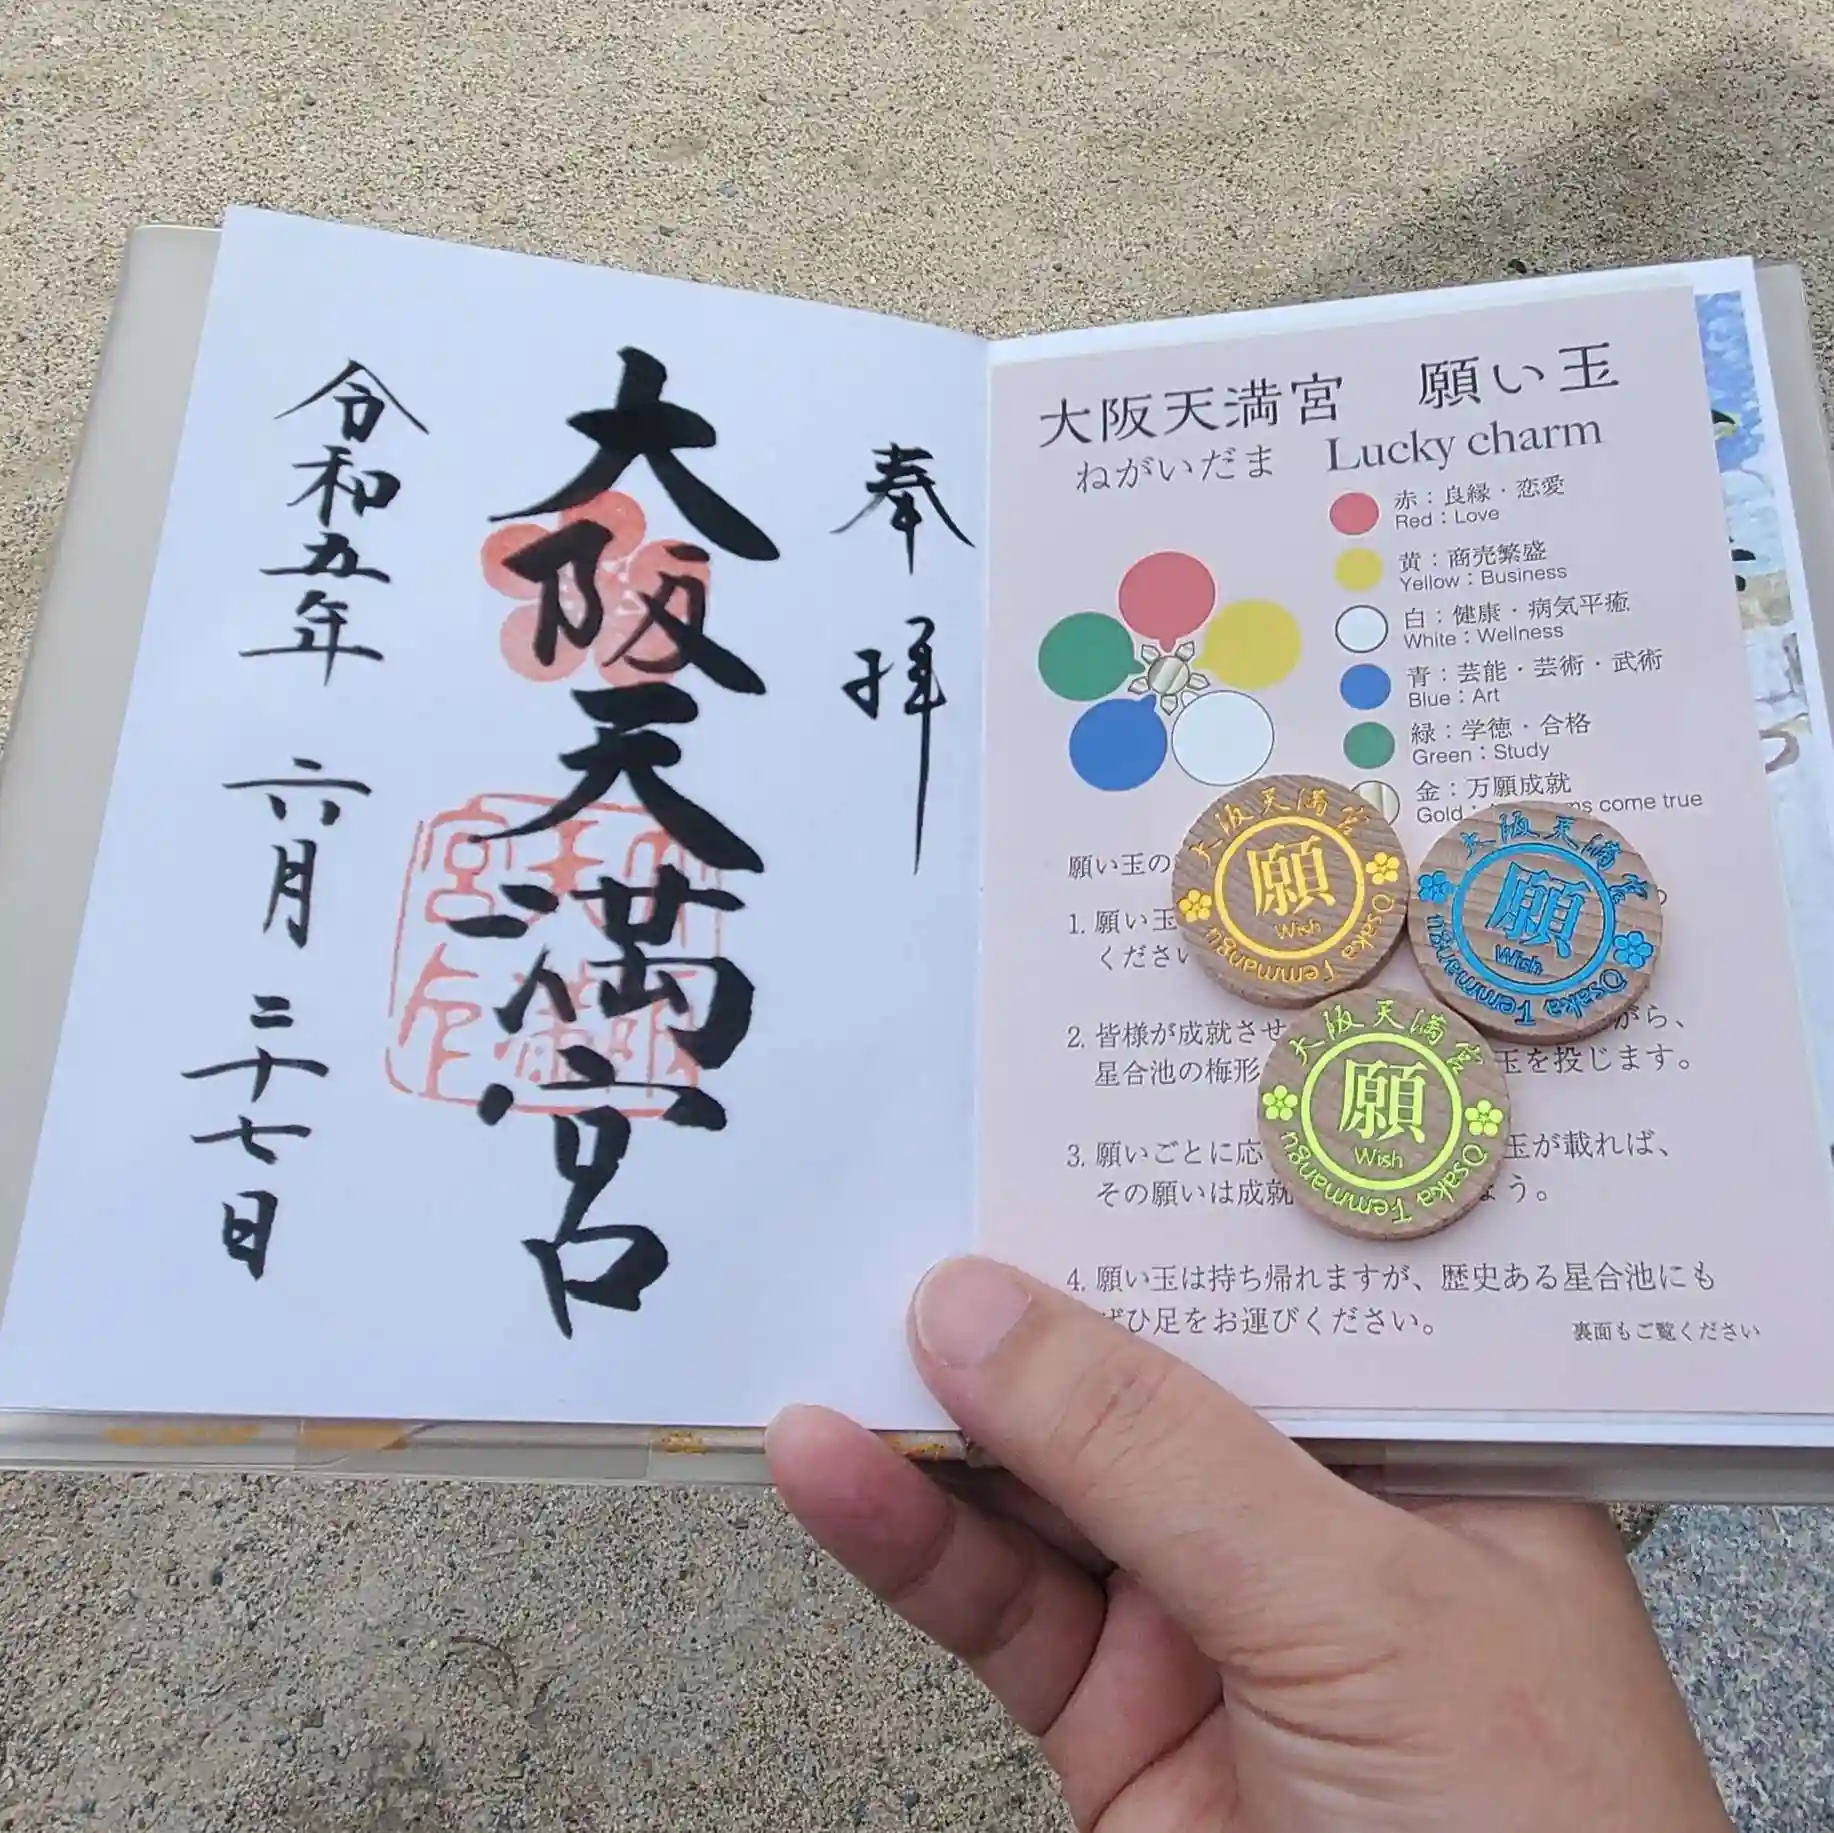 奉拝
大阪天満宮
令和五年 六月 二十七日
大阪天満宮 願い玉
ねがいだま Lucky charm
赤:良縁・恋愛
Red:Love
黄:商売繁盛
Yellow:Business
白:健康・病気平癒
White:Wellness
青:芸能・芸術・武術
Blue:Art
緑:学徳・合格
Green:Study
金:万願成就
Gold: come true
願い玉の
1. 願い玉
くださ
2. 皆様が成就させ がら、
星合池の梅形 玉を投じます。
3. 願いごとに応 玉が載れば、
その願いは成就 ょう。
4. 願い玉は持ち帰れますが、歴史ある星合池にも
ぜひ足をお運びください。
裏面もご覧ください
大阪天満宮
願
Wish
Osaka Temmangu
大阪天満宮
願
Wish
Osaka Temmangu
大阪天満宮
願
Wish
Osaka Temmangu